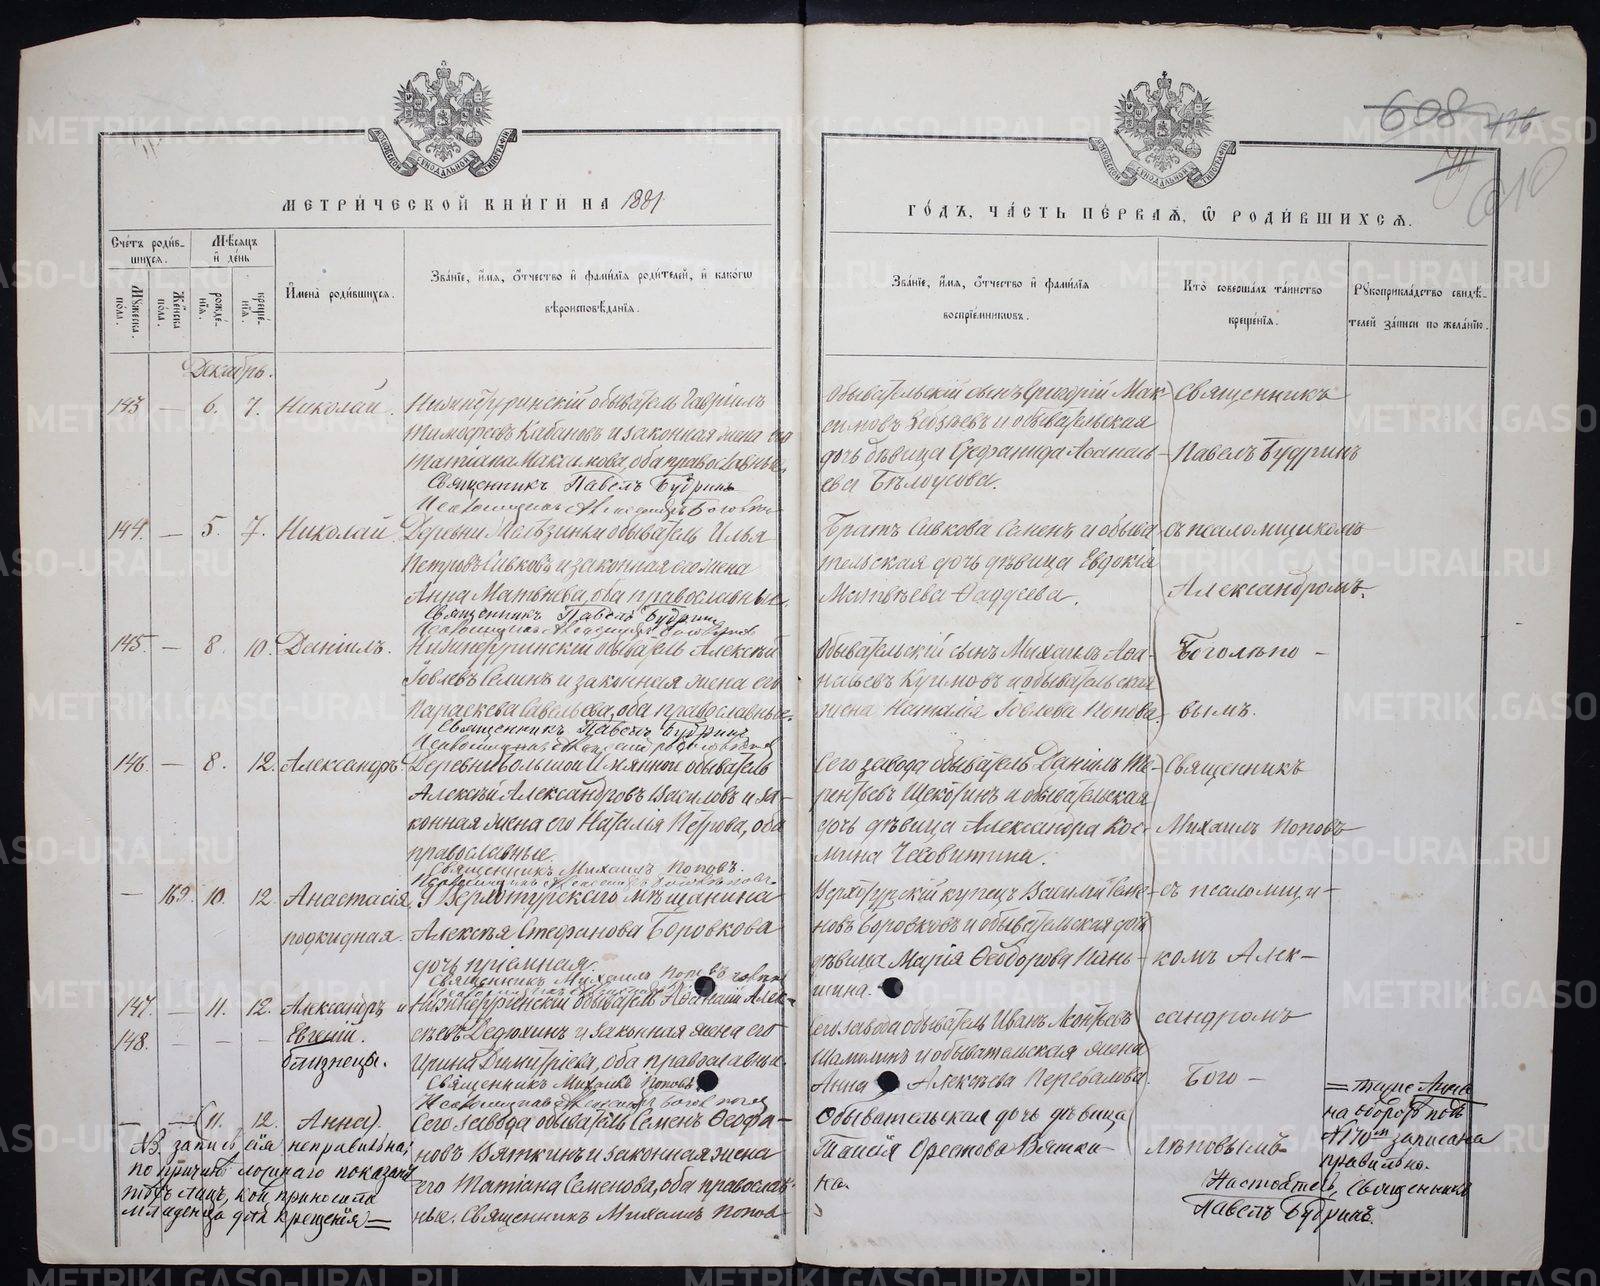 МЕТРИ́ЧЕСКОЙ КНИ́ГИ НА 1881
ГО́ДЪ, ЧА́СТЬ ПЕ́РВАѦ, Ѿ РОДИ́ВШИХСѦ.
Сче́тъ роди́в-
шихся.
Мѣ́сяцъ
и де́нь
Му́жеска пола.
Же́нска пола.
рожде́-
нїя.
креще́-
нїя.
Имена̀ роди́вшихся.
Зва́нїе, и́мя, о́тчество и фами́лїя роди́телей, и како́гѡ
вѣроисповѣ́данїя.
Зва́нїе, и́мя, о́тчество и фами́лїя
воспрїе́мниковъ.
Кто̀ соверша́лъ та́инство
креще́нїя.
Рукоприкла́дство свидѣ́-
телей за́писи по жела́нїю.
Декабрь.
143 — 6. 7. Николай.
Нижнетуринскій обыватель Гавріилъ
Тимофеевъ Кабановъ и законная жена его
Татіана Максимова, оба православные.
Священникъ Павелъ Будринъ
Обывательскій сынъ Григорій Мак-
симовъ и обывательская
дочь дѣвица Стефанида Аѳанась-
ева Бѣлоусова.
Священникъ
Павелъ Будринъ
144. — 5. 7. Николай.
Деревни обыватель Илья
Петровъ Сивковъ и законная его жена
Анна Матвѣева, оба православные.
Священникъ Павелъ Будринъ
Братъ Сивкова Семенъ и обыва-
тельская дочь дѣвица Евдокія
Матвѣева Ѳаддеева.
съ псаломщикомъ
Александромъ
145. — 8. 10. Даніилъ.
Нижнетуринскій обыватель Алексѣй
Іовлевъ Селинъ и законная жена его
Параскева Савельева, оба православные.
Священникъ Павелъ Будринъ
Обывательскій сынъ Михаилъ Аѳа-
насьевъ и обывательская
жена Наталія Іовлева Попова.
Боголѣпо-
вымъ.
146. — 8. 12. Александръ.
Деревни Большой Именной обыватель
Алексѣй Александровъ Василовъ и за-
конная жена его Наталія Петрова, оба
православные.
Священникъ Михаилъ Поповъ.
Сего завода обыватель Даніилъ Те-
рентьевъ Щекотинъ и обывательская
дочь дѣвица Александра Кос-
мина Чеховитина.
Священникъ
Михаилъ Поповъ
— 163. 10. 12. Анастасія
подкидная.
У Верхотурскаго мѣщанина
Алексѣя Стефанова Боровкова
дочь пріемная.
Священникъ Михаилъ Поповъ
Верхотурскій купецъ Василій Семе-
новъ Боровковъ и обывательская дочь
дѣвица Марія Ѳеодорова Пань-
шина.
съ псаломщи-
комъ Алек-
147. — 11. 12. Александръ и
148. — — — Евгеній.
близнецы.
Нижнетуринскій обыватель Аѳанасій Алек-
сѣевъ Дедюхинъ и законная жена его
Ирина Димитріева, оба православные.
Священникъ Михаилъ Поповъ
Сего завода обыватель Иванъ Леонтьевъ
Шамалинъ и обывательская жена
Анна Алексѣева Перевалова.
сандромъ
Бого-
— — (11. 12. Анна).
Сего завода обыватель Семенъ Ѳеофа-
новъ Вяткинъ и законная жена
его Татіана Семенова, оба православ-
ные. Священникъ Михаилъ Поповъ
Обывательская дочь дѣвица
Таисія Орестова Вятки-
на.
лѣповымъ
NB. запись сія неправильна,
по причинѣ ложнаго показанія
тѣхъ лицъ, кои приносили
младенца для крещенія)=
= тоже Анна
на оборотѣ подъ
№ 170м записана
правильно.
Настоятель, Священникъ
Павелъ Будринъ.